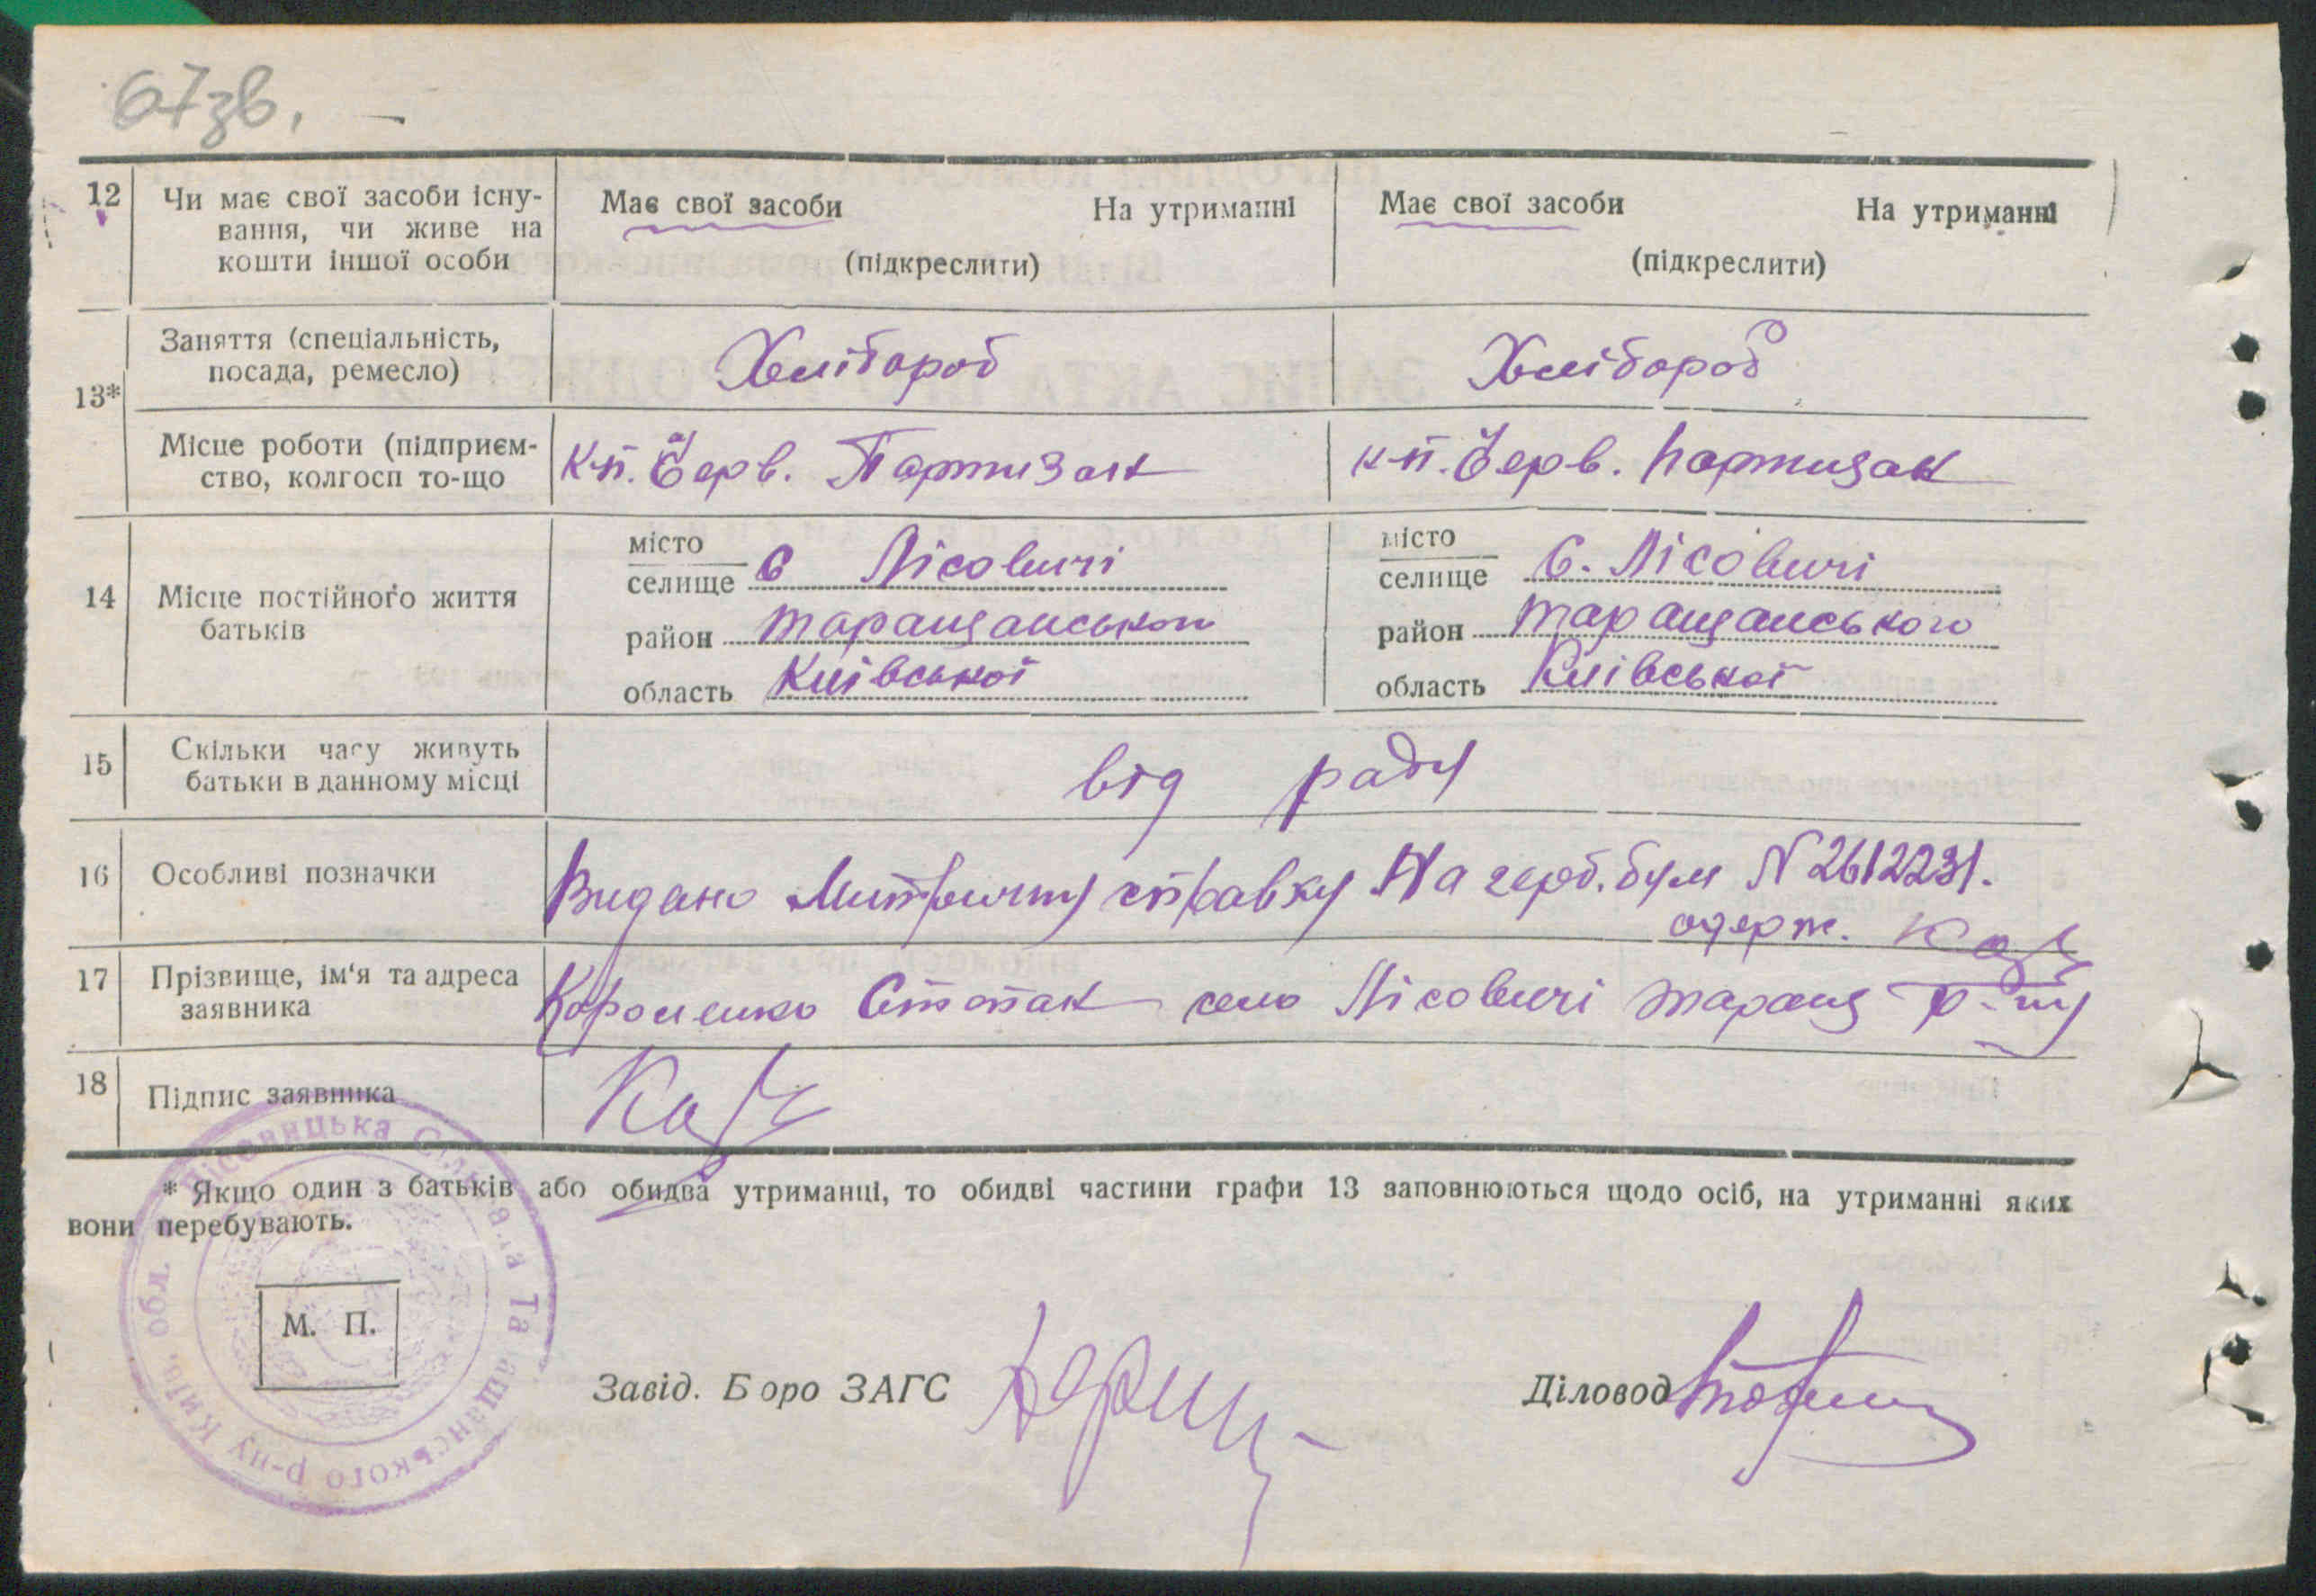 67зв.
12
Чи має свої засоби існу-
вання, чи живе на
кошти іншої особи
Має свої засоби На утриманні
(підкреслити)
Має свої засоби На утриманні
(підкреслити)
13*
Заняття (спеціальність,
посада, ремесло)
Хлібороб
Хлібороб
Місце роботи (підприєм-
ство, колгосп то-що
к-п. Черв. Партизан
к-п. Черв. Партизан
14
Місце постійного життя
батьків
місто
селище с Лісовичі
район Таращанського
область Київської
місто
селище с. Лісовичі
район Таращанського
область Київської
15
Скільки часу живуть
батьки в данному місці
від роду
16
Особливі позначки
Видано Митричну справку На герб. бум N 2612231.
одерж.
17
Прізвище, ім'я та адреса
заявника
село Лісовичі Таращ р-ну
18
Підпис заявника
* Якщо один з батьків або обидва утриманці, то обидві частини графи 13 заповнюються щодо осіб, на утриманні яких
вони перебувають.
Лісовицька Сільрада Таращанського р-ну Київ. обл.
М. П.
Завід. Бюро ЗАГС
Діловод